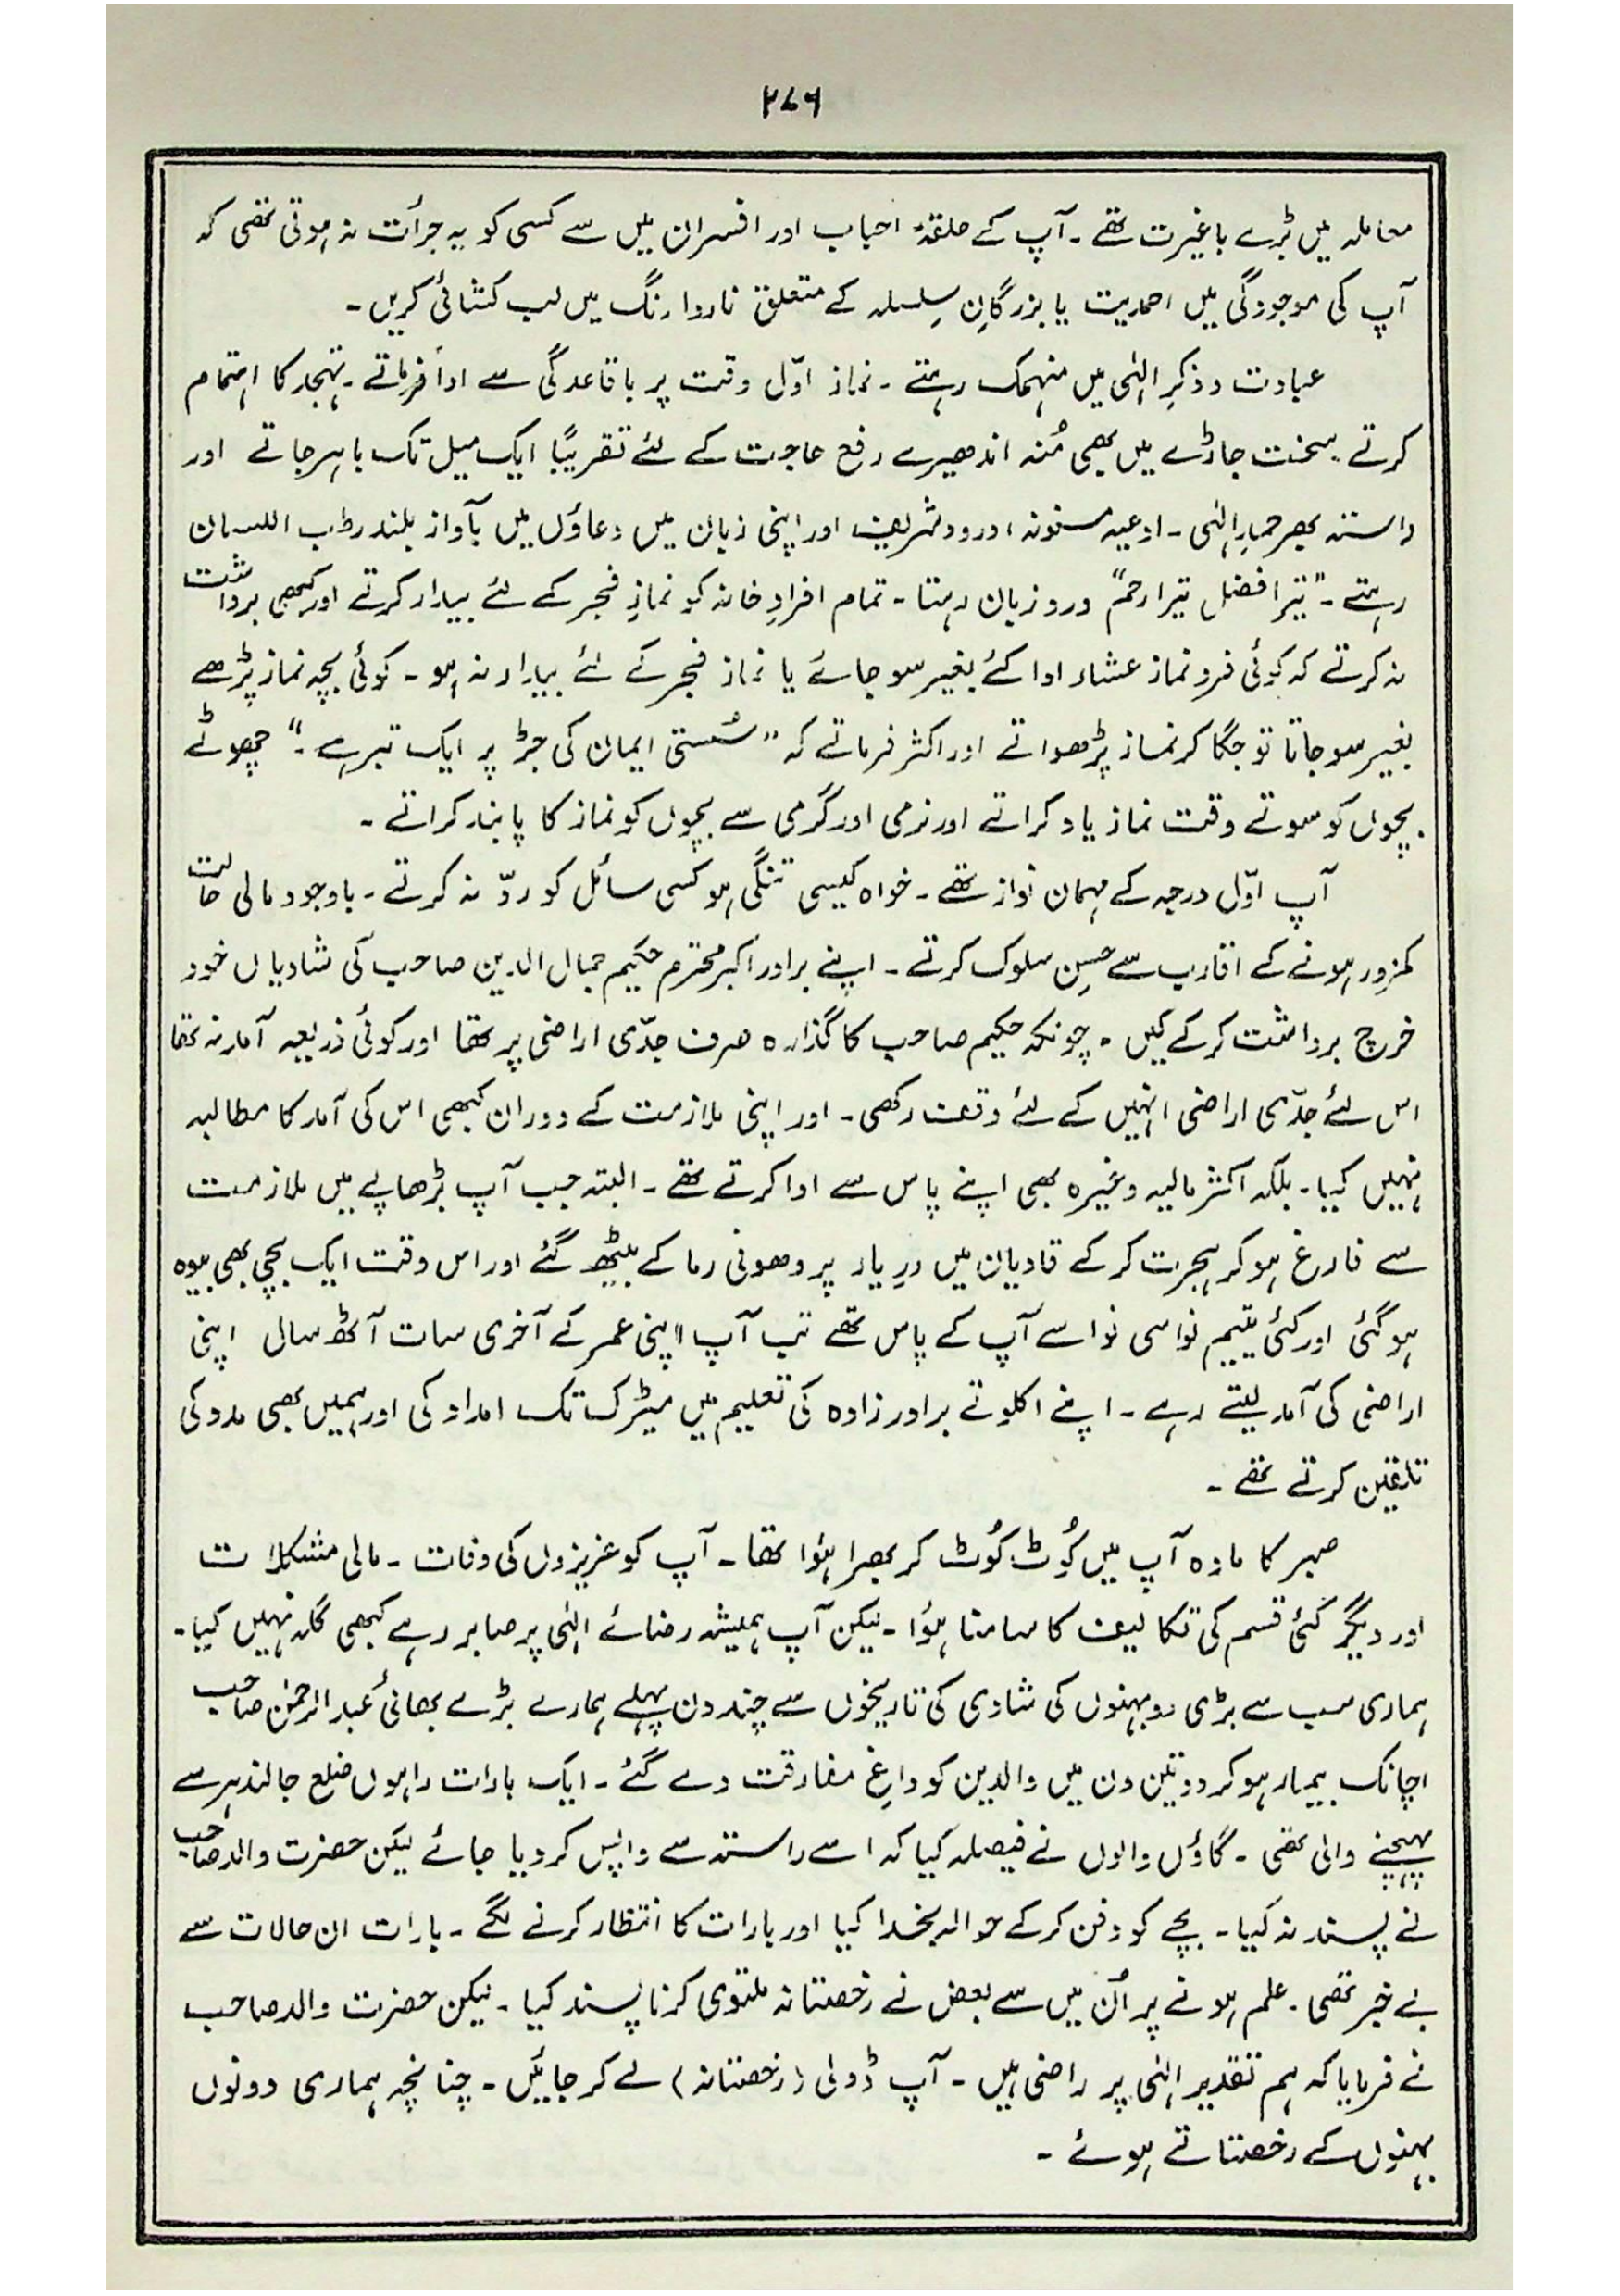 ۲۷۶
معاملہ میں بڑے باغیرت تھے ۔ آپ کے حلقۂ احباب اور افسران میں سے کسی کو یہ جرأت نہ ہوتی تھی کہ
آپ کی موجودگی میں احمدیت یا بزرگانِ سِلسلہ کے متعلق ناروا رنگ میں لب کشائی کریں ۔
عبادت و ذکرِ الٰہی میں منہمک رہتے ۔ نماز اوّل وقت پر باقاعدگی سے ادا فرماتے ۔ تہجد کا اہتمام
کرتے ۔ سخت جاڑے میں بھی مُنہ اندھیرے رفع حاجت کے لئے تقریبًا ایک میل تک باہر جاتے اور
راستہ بھر حمدِ الٰہی ۔ ادعیہ مسنونہ ، درود شریف اور اپنی زبان میں دعاؤں میں بآواز بلند رطب اللسان
رہتے ۔ ”تیرا فضل تیرا رحم“ ورد زبان رہتا ۔ تمام افرادِ خانہ کو نمازِ فجر کے لئے بیدار کرتے اور کبھی برداشت
نہ کرتے کہ کوئی فرد نماز عشاء ادا کئے بغیر سو جائے یا نماز فجر کے لئے بیدار نہ ہو ۔ کوئی بچہ نماز پڑھے
بغیر سو جاتا تو جگا کر نماز پڑھواتے اور اکثر فرماتے کہ ”سُستی ایمان کی جڑ پر ایک تبر ہے ۔“ چھوٹے
بچوں کو سوتے وقت نماز یاد کراتے اور نرمی اور گرمی سے بچوں کو نماز کا پابند کراتے ۔
آپ اوّل درجہ کے مہمان نواز تھے ۔ خواہ کیسی تنگی ہو کسی سائل کو ردّ نہ کرتے ۔ باوجود مالی حالت
کمزور ہونے کے اقارب سے حسنِ سلوک کرتے ۔ اپنے برادر اکبر محترم حکیم جمال الدین صاحب کی شادیاں خود
خرچ برداشت کر کے کیں ۔ چونکہ حکیم صاحب کا گذارہ صرف جدّی اراضی پر تھا اور کوئی ذریعہ آمد نہ تھا
اس لئے جدّی اراضی انہیں کے لئے وقف رکھی ۔ اور اپنی ملازمت کے دوران کبھی اس کی آمد کا مطالبہ
نہیں کیا ۔ بلکہ اکثر مالیہ وغیرہ بھی اپنے پاس سے ادا کرتے تھے ۔ البتہ جب آپ بڑھاپے میں ملازمت
سے فارغ ہو کر ہجرت کر کے قادیان میں درِ یار پر دھونی رما کے بیٹھ گئے اور اس وقت ایک بچی بھی بیوہ
ہو گئی اور کئی یتیم نواسی نواسے آپ کے پاس تھے تب آپ اپنی عمر کے آخری سات آٹھ سال اپنی
اراضی کی آمد لیتے رہے ۔ اپنے اکلوتے برادر زادہ کی تعلیم میں میٹرک تک امداد کی اور ہمیں بھی مدد کی
تلقین کرتے تھے ۔
صبر کا مادہ آپ میں کُوٹ کُوٹ کر بھرا ہؤا تھا ۔ آپ کو عزیزوں کی وفات ۔ مالی مشکلات
اور دیگر کئی قسم کی تکالیف کا سامنا ہؤا ۔ لیکن آپ ہمیشہ رضائے الٰہی پر صابر رہے کبھی گلہ نہیں کیا ۔
ہماری سب سے بڑی دو بہنوں کی شادی کی تاریخوں سے چند دن پہلے ہمارے بڑے بھائی عبدالرحمٰن صاحب
اچانک بیمار ہو کر دو تین دن میں والدین کو داغِ مفارقت دے گئے ۔ ایک بارات راہوں ضلع جالندہر سے
پہنچنے والی تھی ۔ گاؤں والوں نے فیصلہ کیا کہ اسے راستہ سے واپس کر دیا جائے لیکن حضرت والد صاحب
نے پسند نہ کیا ۔ بچے کو دفن کر کے حوالہ بخدا کیا اور بارات کا انتظار کرنے لگے ۔ بارات ان حالات سے
بے خبر تھی ۔ علم ہونے پر اُن میں سے بعض نے رخصتانہ ملتوی کرنا پسند کیا ۔ لیکن حضرت والد صاحب
نے فرمایا کہ ہم تقدیر الٰہی پر راضی ہیں ۔ آپ ڈولی ( رخصتانہ ) لے کر جائیں ۔ چنانچہ ہماری دونوں
بہنوں کے رخصتانے ہوئے ۔